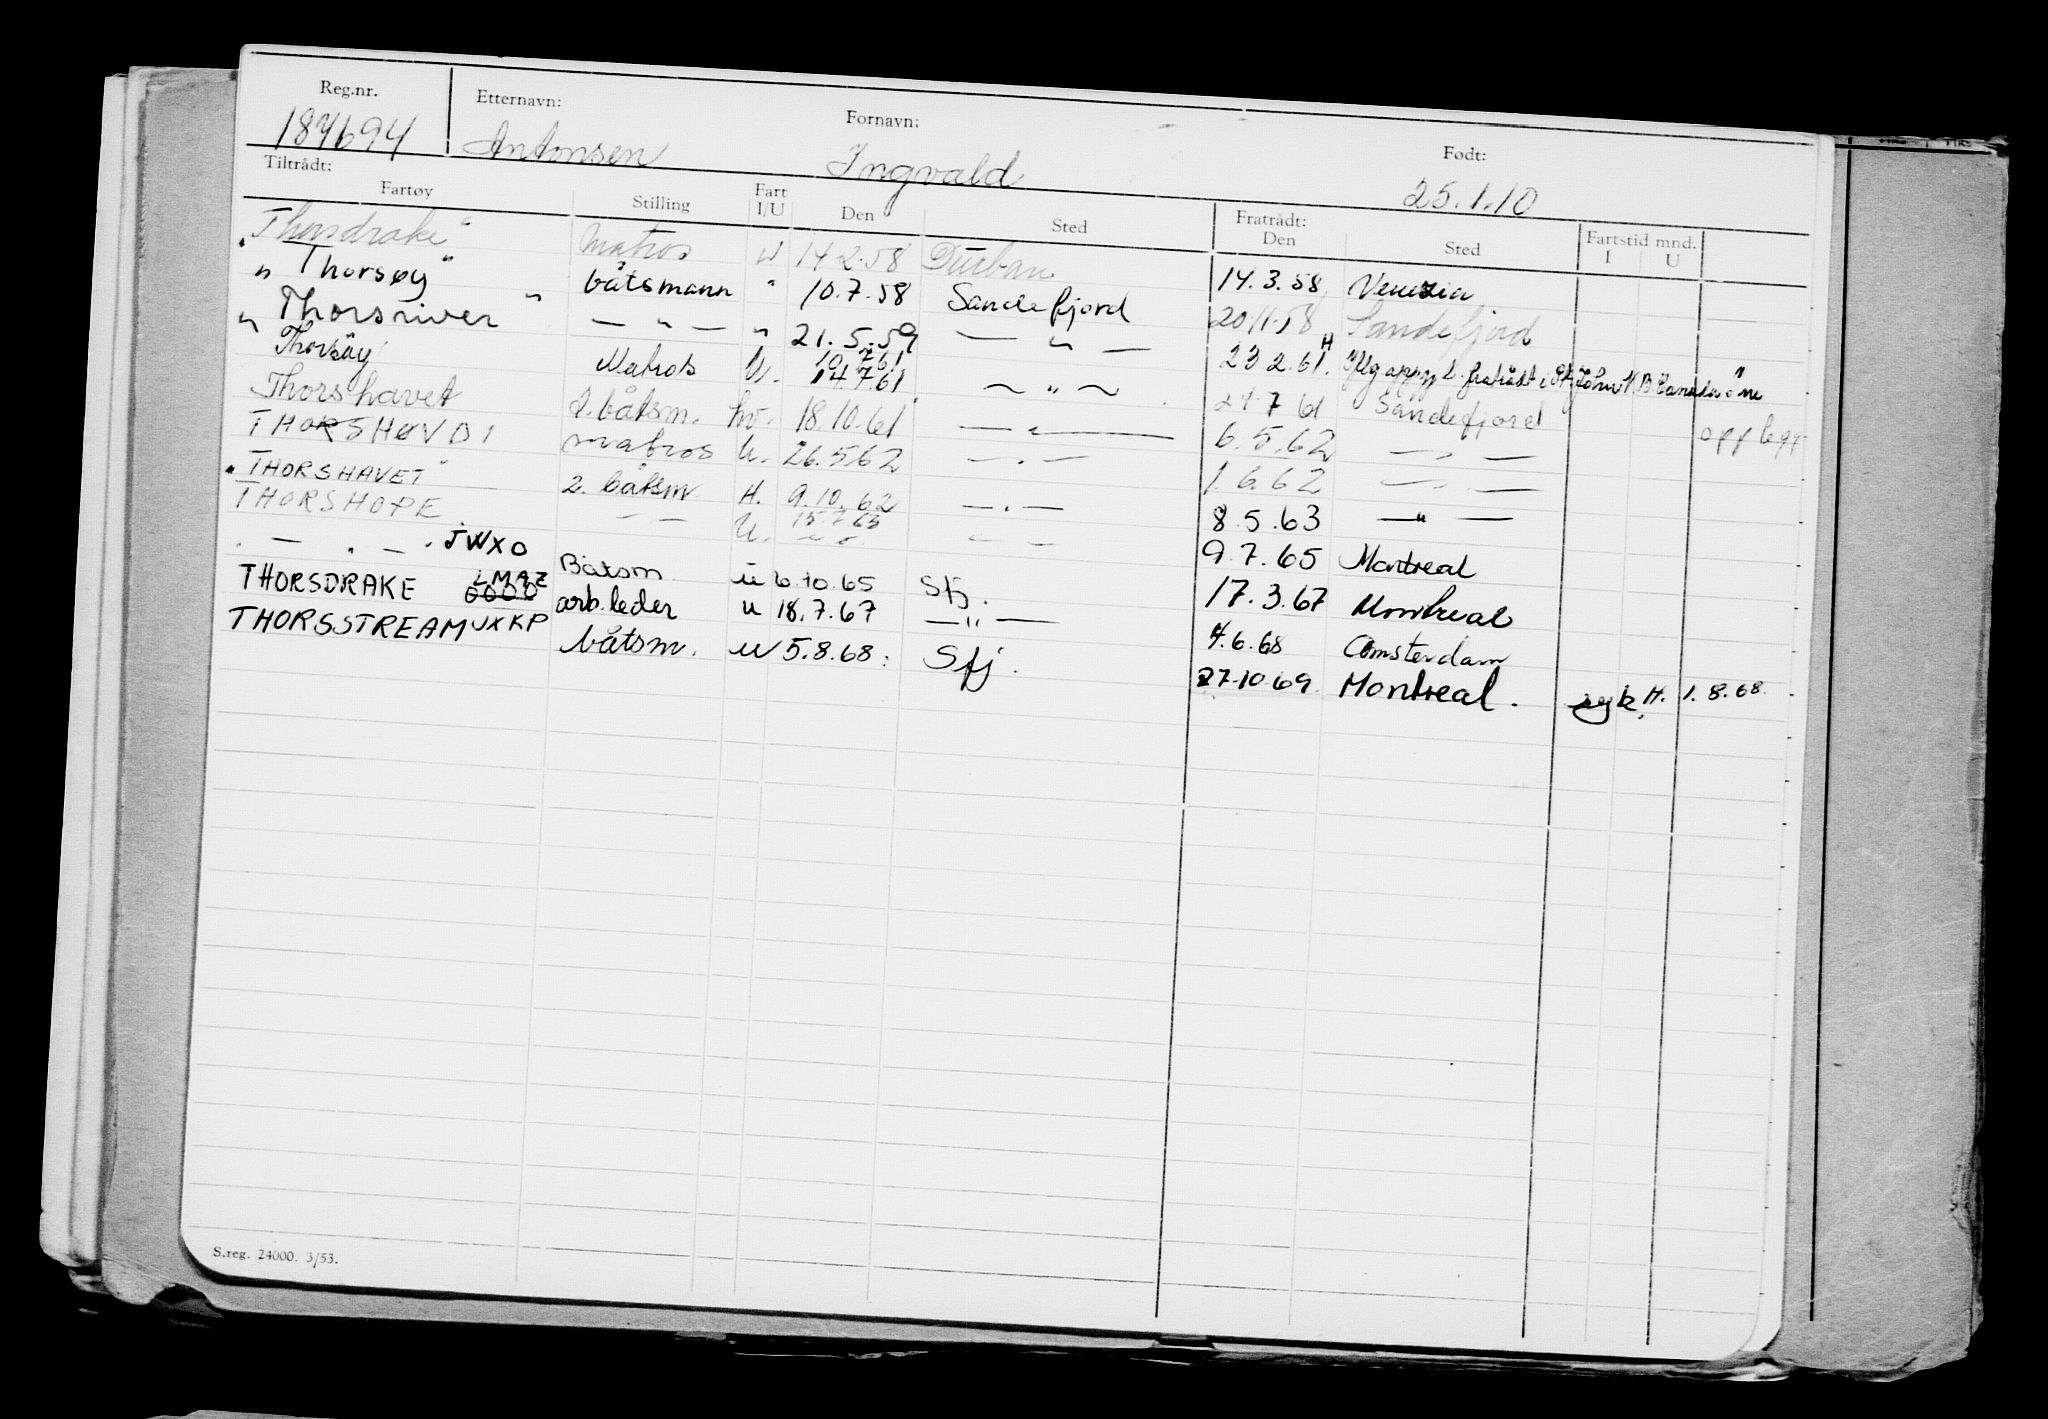 Reg.nr. Etternavn: Fornavn: Født:
187694 Antonsen Ingvald 25.1.10
Tiltrådt: Fratrådt: Fartstid mnd.
Fartøy Stilling Fart I/U Den Sted Den Sted I U
"Thorsdrake" Matros u 14.2.58 Durban 14.3.58 Venezia
" Thorsøy" båtsmann " 10.7.58 Sandefjord 20.11.58 Sandefjord
" Thorsriver " — " — " 21.5.59 — " — 23.2.61. fratrådt i
Thorsøy Matros U. 14.7.61 ~ " ~ 21.7.61 Sandefjord opplegg
Thorshavet 2. båtsm. hv. 18.10.61 — " — 6.5.62 — " —
THORSHØVDI matros U. 26.5.62 — " — 1.6.62 — " —
"THORSHAVET" 2. båtsm. H. 9.10.62 — " — 8.5.63 — " —
THORSHOPE — — U. 15.7.63 — — 9.7.65 Montreal
. — . — . JWXO Båtsm u 6.10.65 Sfj. 17.3.67 Montreal
THORSDRAKE LMAZ arb.leder u 18.7.67 — " — 4.6.68 Amsterdam
THORSSTREAM JXKP båtsm. u 5.8.68. Sfj. 27.10.69. Montreal. syk. H. 1.8.68.
S.reg. 24000. 3/53.